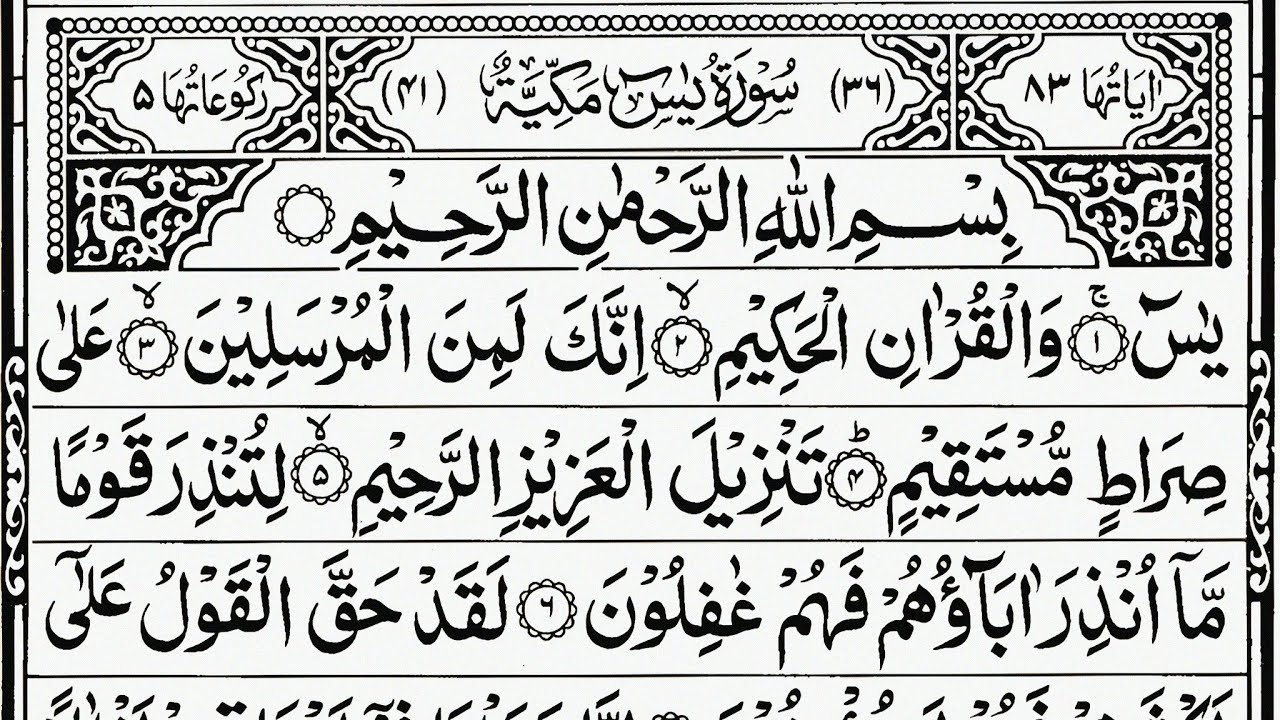 اٰيَاتُهَا ٨٣ (٣٦) سُوْرَةُ يٰسٓ مَكِّيَّةٌ (٤١) رُكُوْعَاتُهَا ٥
بِسْمِ اللّٰهِ الرَّحْمٰنِ الرَّحِيْمِ
يٰسٓ ۚ ١ وَالْقُرْاٰنِ الْحَكِيْمِ ۙ ٢ اِنَّكَ لَمِنَ الْمُرْسَلِيْنَ ۙ ٣ عَلٰى
صِرَاطٍ مُّسْتَقِيْمٍ ؕ ٤ تَنْزِيْلَ الْعَزِيْزِ الرَّحِيْمِ ۙ ٥ لِتُنْذِرَ قَوْمًا
مَّآ اُنْذِرَ اٰبَآؤُهُمْ فَهُمْ غٰفِلُوْنَ ٦ لَقَدْ حَقَّ الْقَوْلُ عَلٰٓى